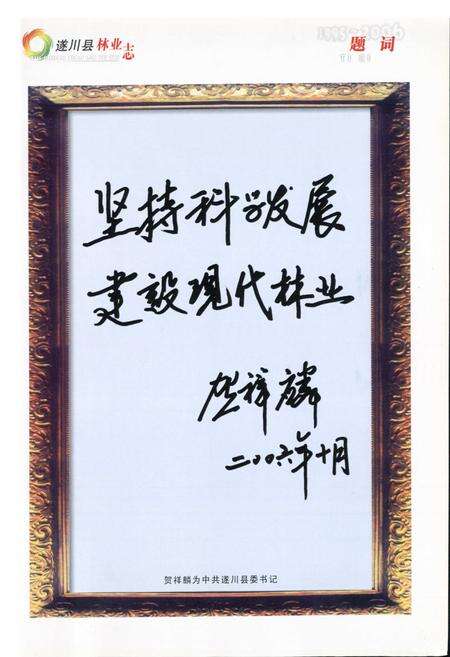 遂川县林业志
1995-2006
题词
坚持科学发展
建设现代林业
贺祥麟
二〇〇六年十月
贺祥麟为中共遂川县委书记